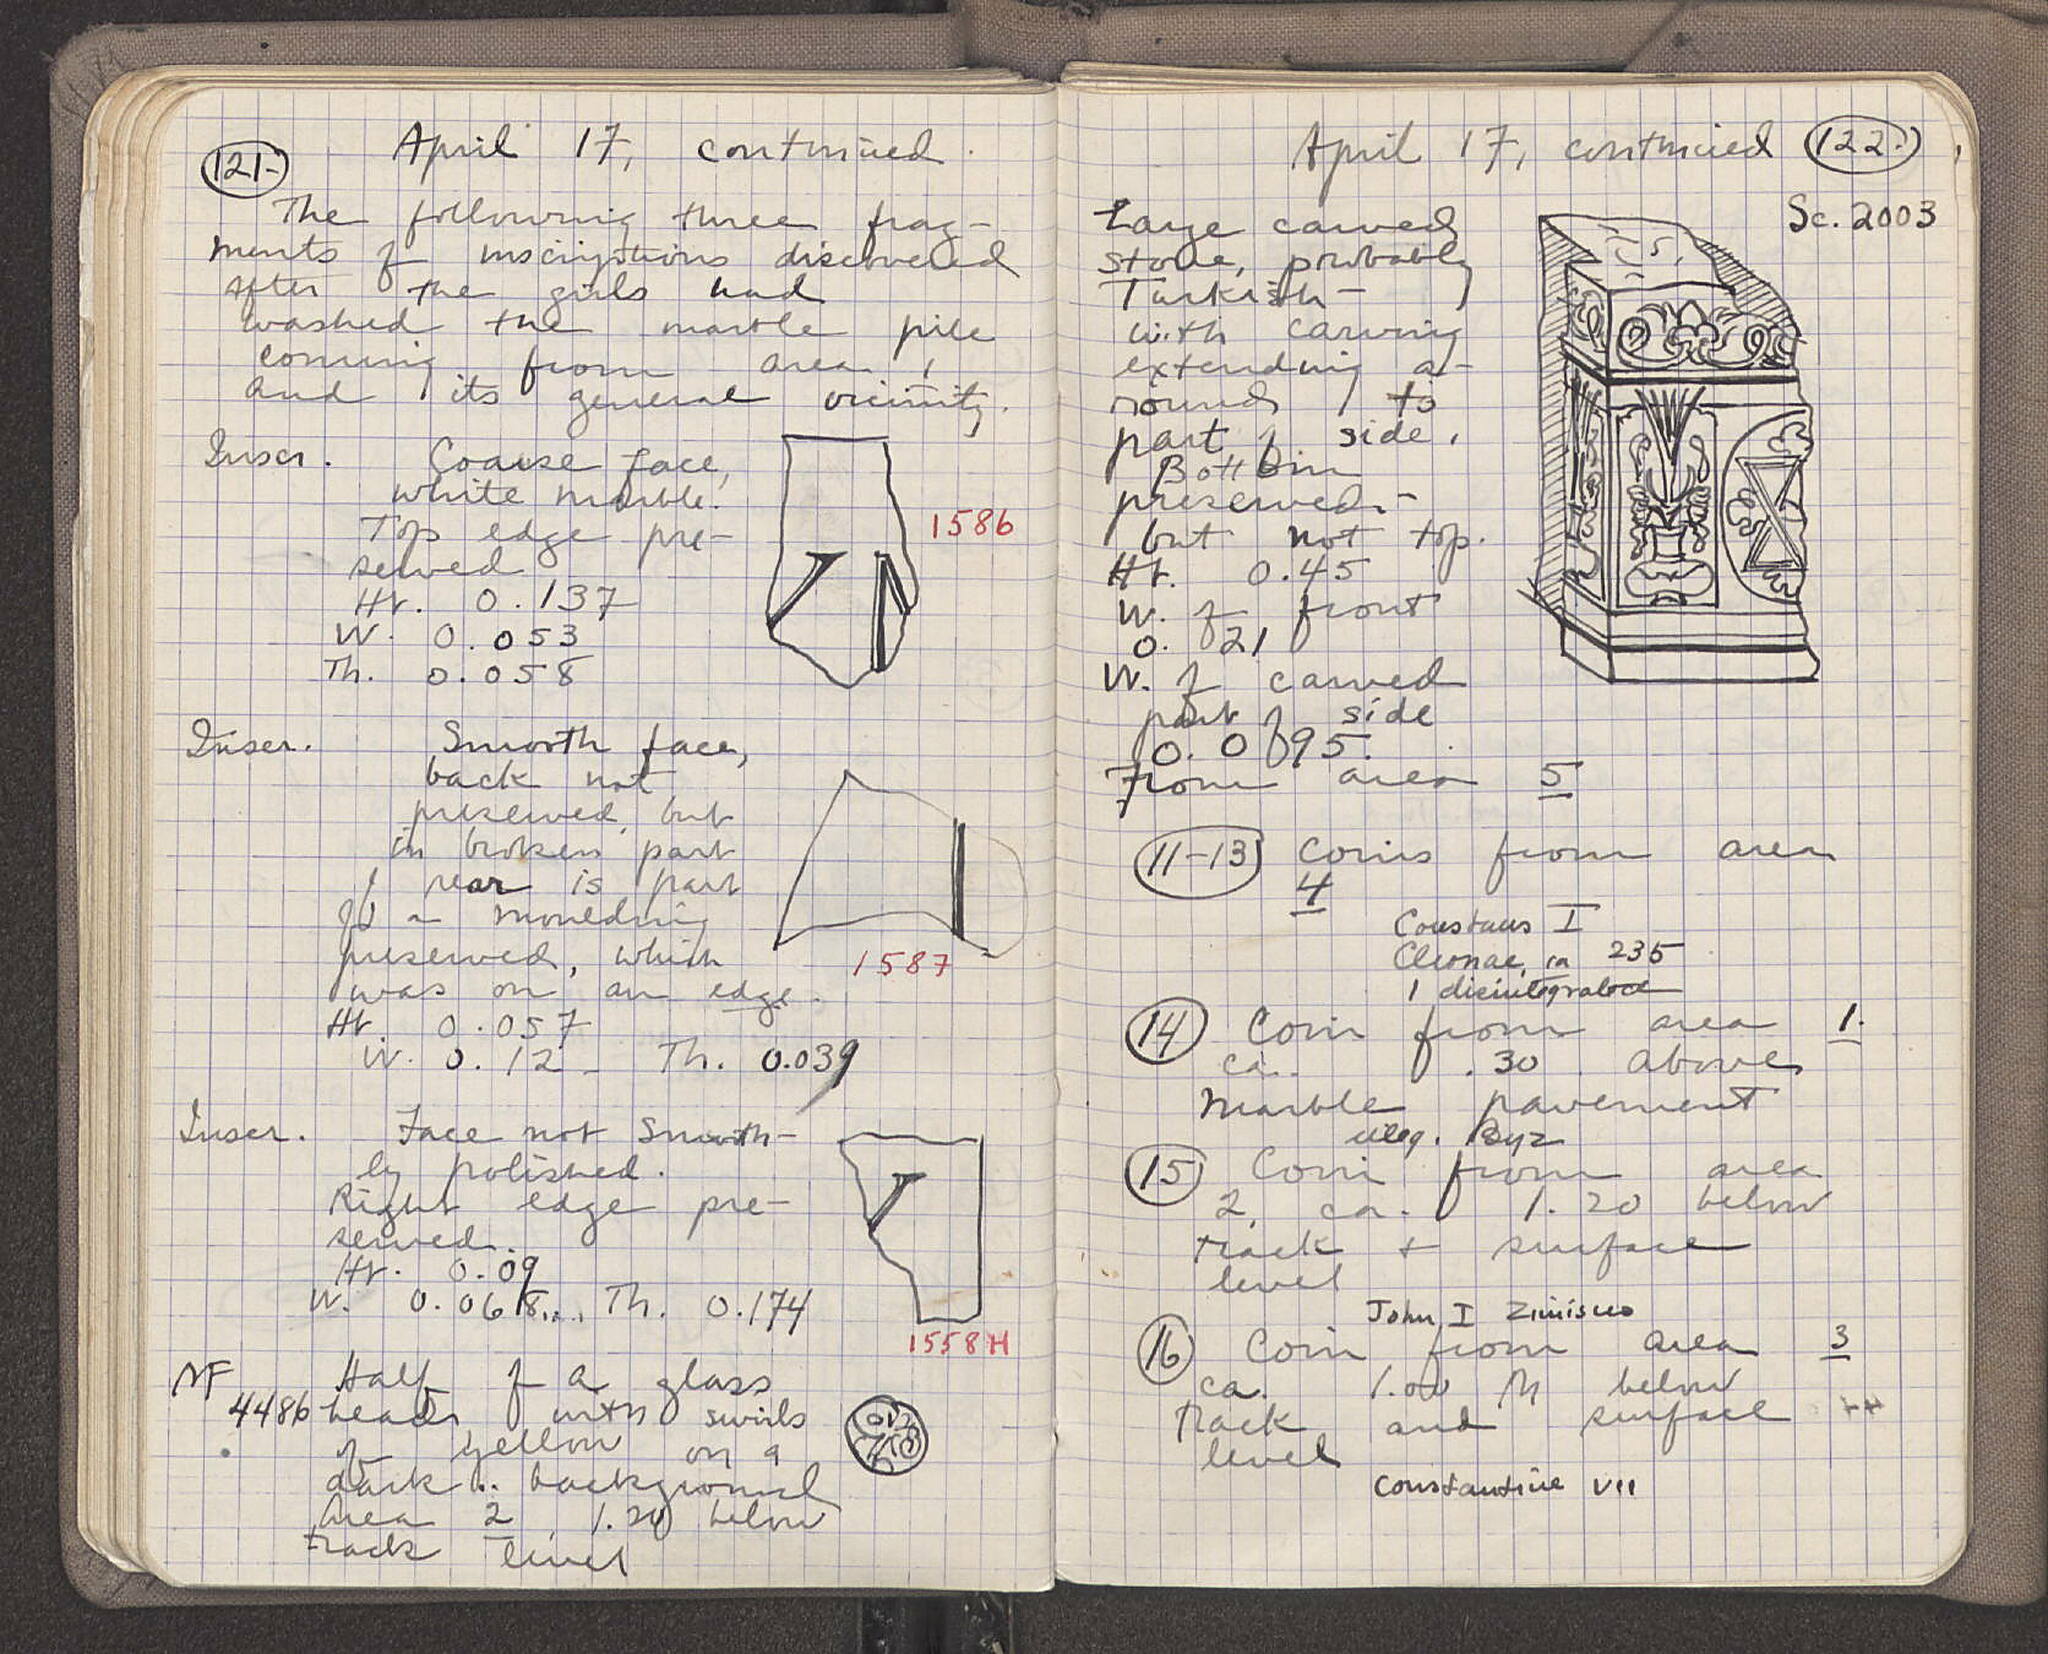 121-
April 17, continued.
The following three frag-
ments of inscriptions discovered
after the girls had
washed the marble pile
coming from area 1
and its general vicinity.
Inscr. Coarse face,
white marble.
Top edge pre-
served
Ht. 0.137
W. 0.053
Th. 0.058
1586
Inscr. Smooth face,
back not
preserved, but
in broken part
of rear is part
of a moulding
preserved, which
was on an edge.
Ht. 0.057
W. 0.12 - Th. 0.039
1587
Inscr. Face not smooth-
ly polished.
Right edge pre-
served.
Ht. 0.09
W. 0.068... Th. 0.174
1558H
MF Half of a glass
4486 bead with swirls
of yellow on a
dark background
Area 2, 1.20 below
track level
April 17, continued 122.
Sc. 2003
Large carved
stone, probably
Turkish -
with carving
extending a-
round to
part of side.
Bottom
preserved -
but not top.
Ht. 0.45
W. of front
0.21
W. of carved
part of side
0.095.
From area 5
11-13 Coins from area
4
Constans I
Cleonae, ca 235
1 disintegrated
14 Coin from area 1.
ca. .30 above
marble pavement
illeg. Byz
15 Coin from area
2, ca. 1.20 below
track + surface
level
John I Zimisces
16 Coin from area 3
ca. 1.00 M below
track and surface
level
Constantine VII